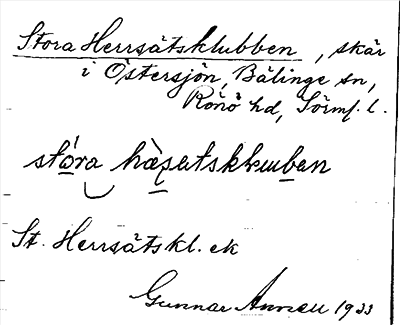 Stora Herrsätsklubben, skär
i Östersjön, Bälinge sn,
Rönö hd, Sörml. l.
stóra hàsetskluban
St. Herrsätskl. ek
Gunnar 1933